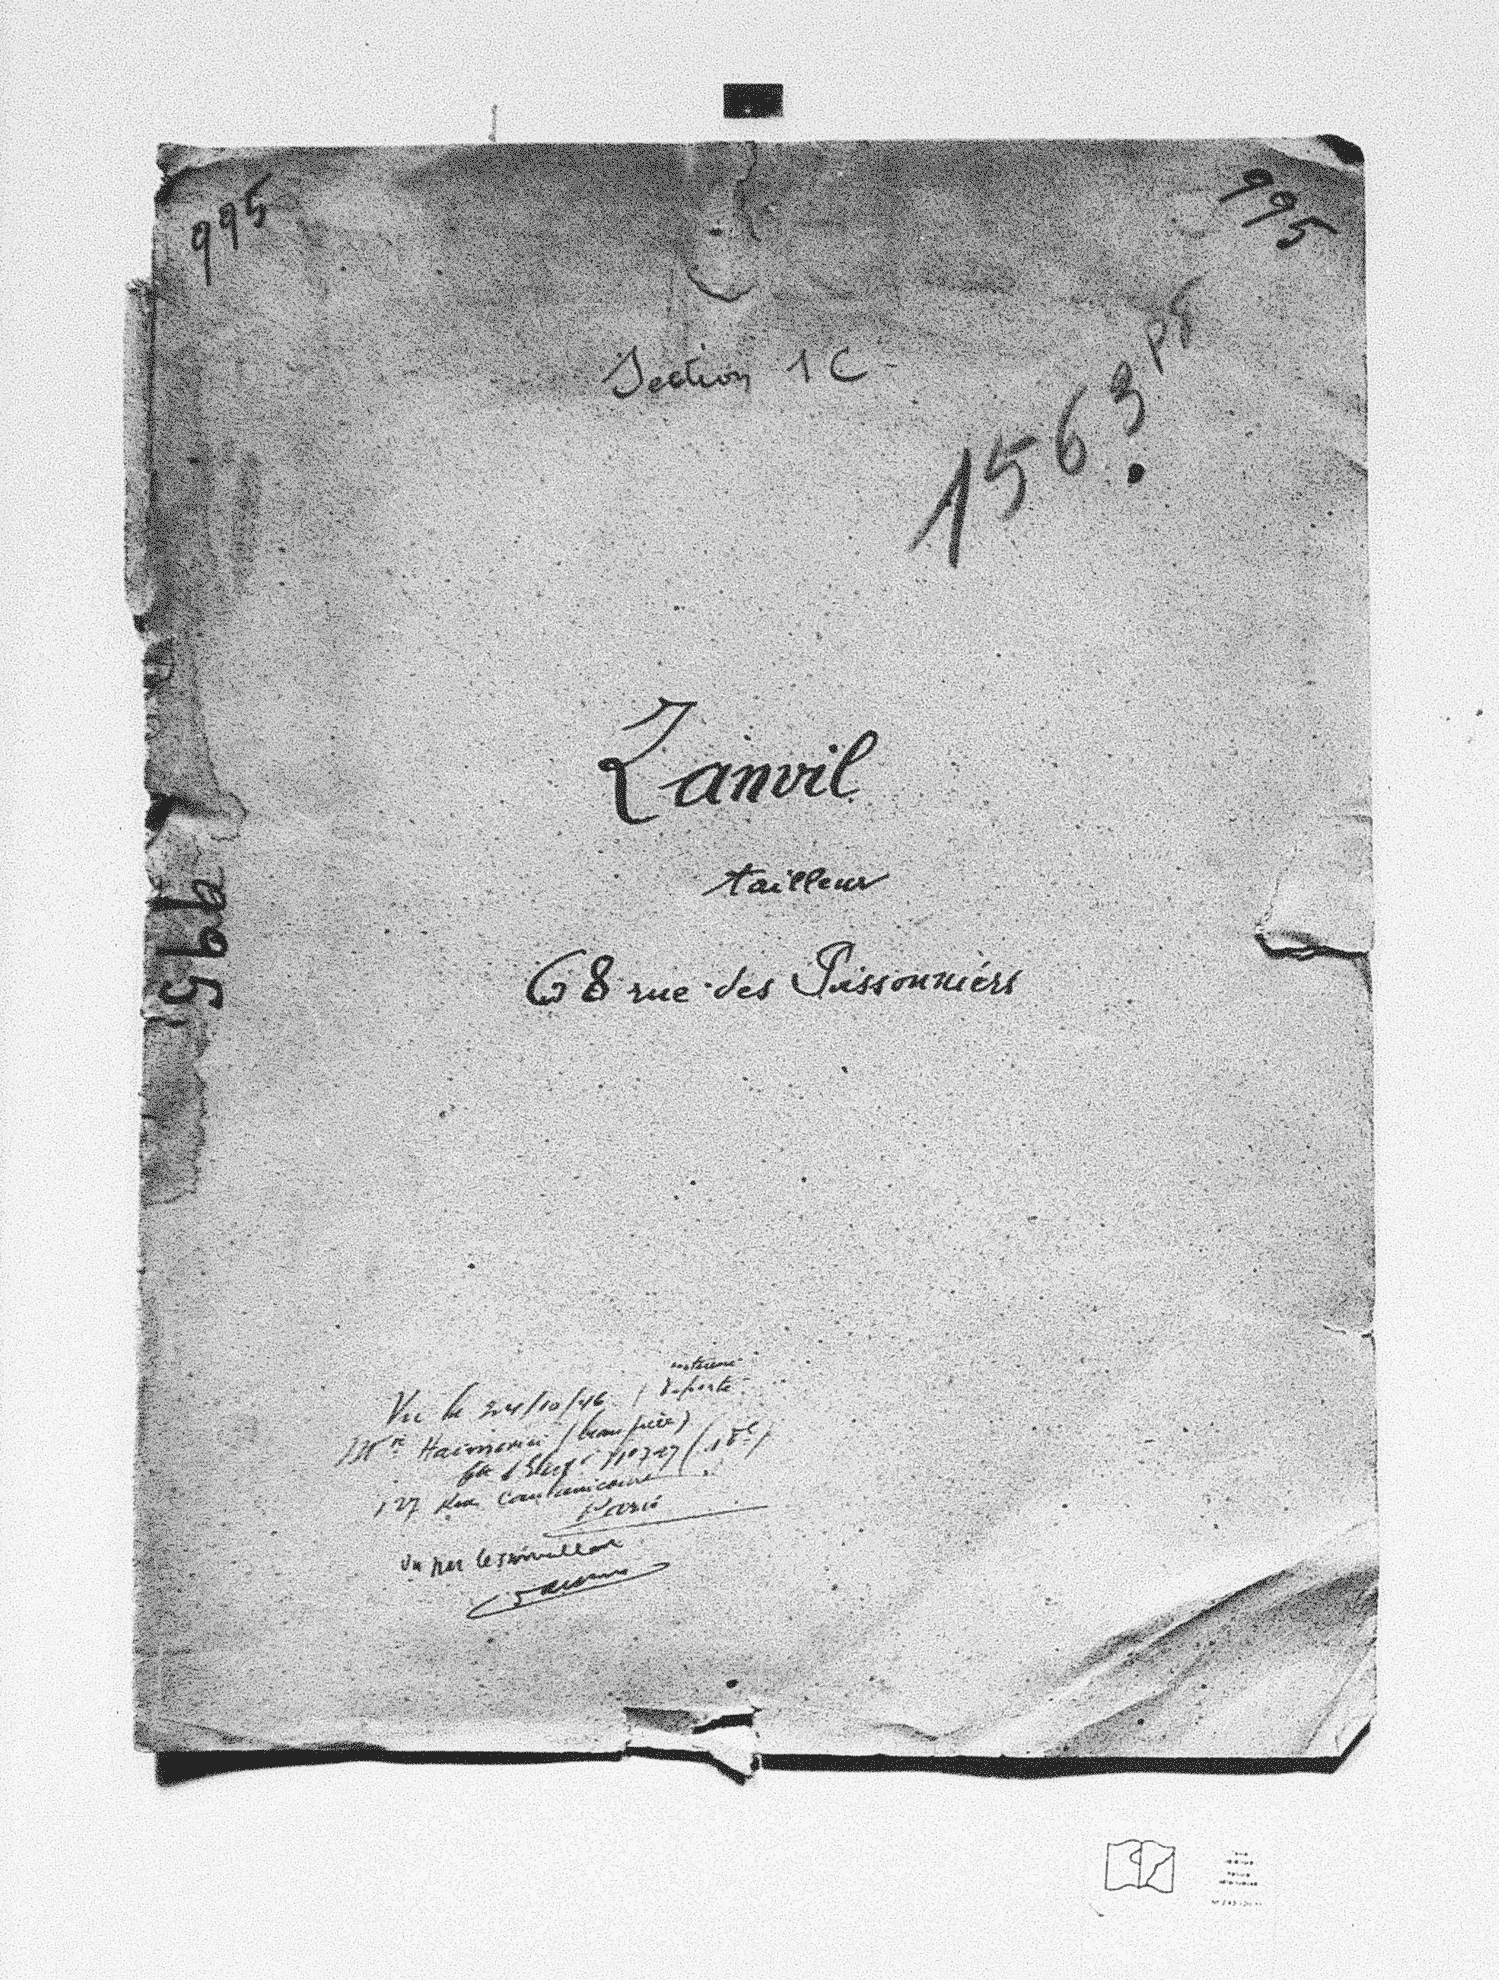 995
995
Section 1 C
1563 PS
Zanvil
tailleur
68 rue des Poissonniers
995
Vu le 24/10/46
intéressé
déporté
(beau frère)
127 Rue Caulaincourt
Paris
Vu par le surveillant